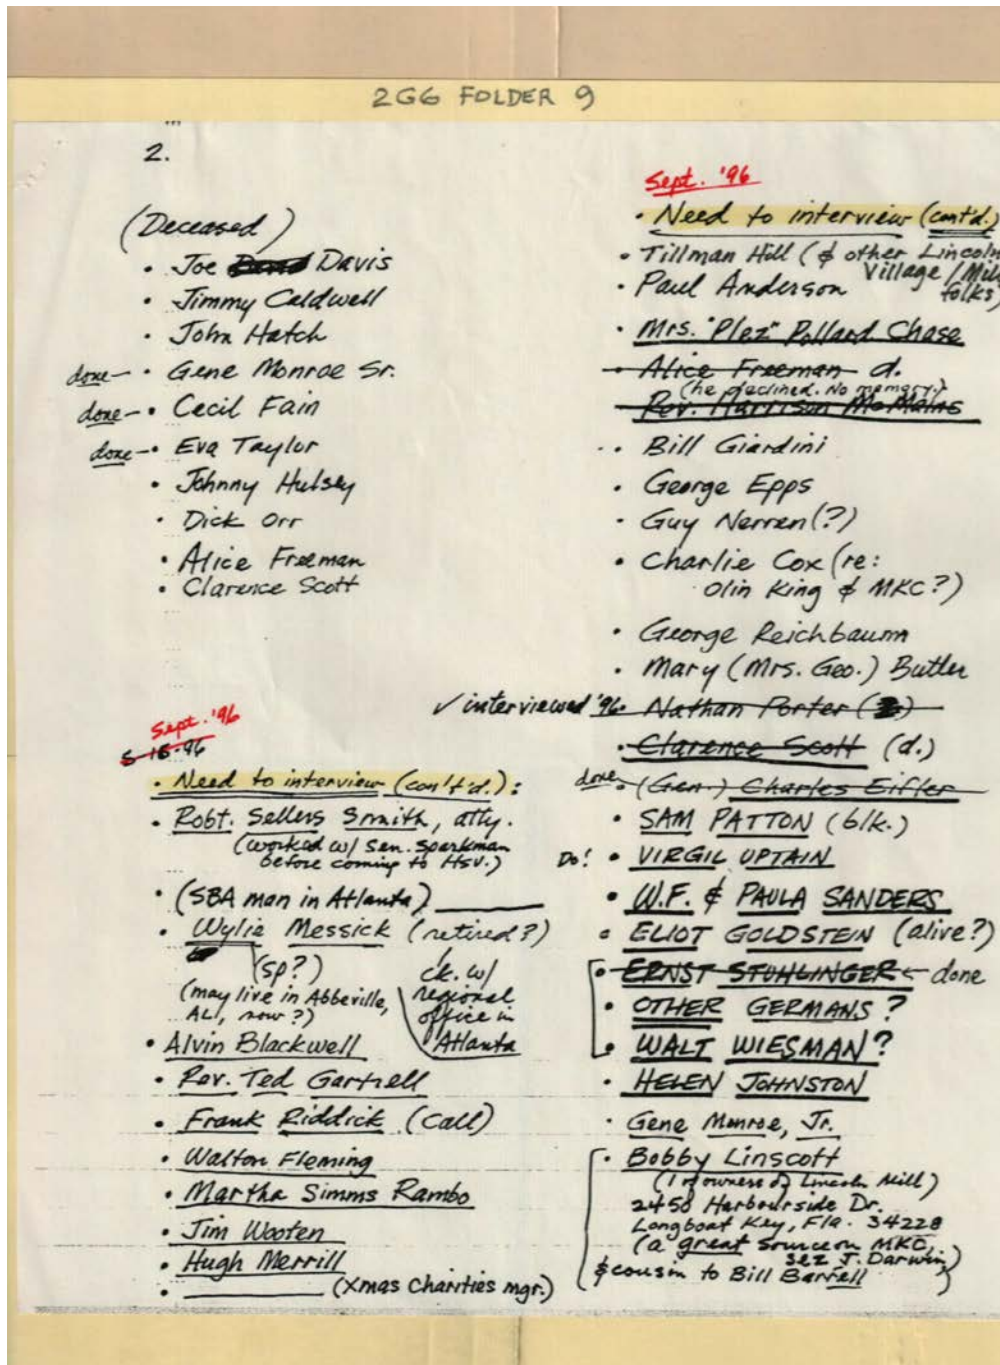 2G6 FOLDER 9
2.
(Deceased)
• Joe Davis
• Jimmy Caldwell
• John Hatch
done — • Gene Monroe Sr.
done — • Cecil Fain
done — • Eva Taylor
• Johnny Hulsey
• Dick Orr
• Alice Freeman
• Clarence Scott
Sept. '96
5-15-96
• Need to interview (con't'd.):
• Robt. Sellers Smith, atty.
(worked w/ Sen. Sparkman
before coming to Hsv.)
• (SBA man in Atlanta) ______
• Wylie Messick (retired?)
(sp?)
(may live in Abbeville,
AL, now?)
ck. w/
regional
office in
Atlanta
• Alvin Blackwell
• Rev. Ted Gartrell
• Frank Riddick (call)
• Walton Fleming
• Martha Simms Rambo
• Jim Wooten
• Hugh Merrill
• ______ (Xmas Charities mgr.)
Sept. '96
• Need to interview (cont'd.)
• Tillman Hill (& other Lincoln
Village/Mill
folks)
• Paul Anderson
• Mrs. "Plez" Pollard Chase
• Alice Freeman d.
(he declined. No memory.)
• Rev. Harrison McMains
• Bill Giardini
• George Epps
• Guy Nerren(?)
• Charlie Cox (re:
Olin King & MKC?)
• George Reichbaum
• Mary (Mrs. Geo.) Butler
✓ interviewed '96 • Nathan Porter
• Clarence Scott (d.)
done • (Gen.) Charles Eifler
• SAM PATTON (blk.)
Do! • VIRGIL UPTAIN
• W.F. & PAULA SANDERS
• ELIOT GOLDSTEIN (alive?)
• ERNST STUHLINGER ← done
• OTHER GERMANS?
• WALT WIESMAN?
• HELEN JOHNSTON
• Gene Monroe, Jr.
• Bobby Linscott
(1 of owners of Lincoln Mill)
2450 Harbourside Dr.
Longboat Key, Fla. 34228
(a great source on MKC,
sez J. Darwin)
& cousin to Bill Barrell